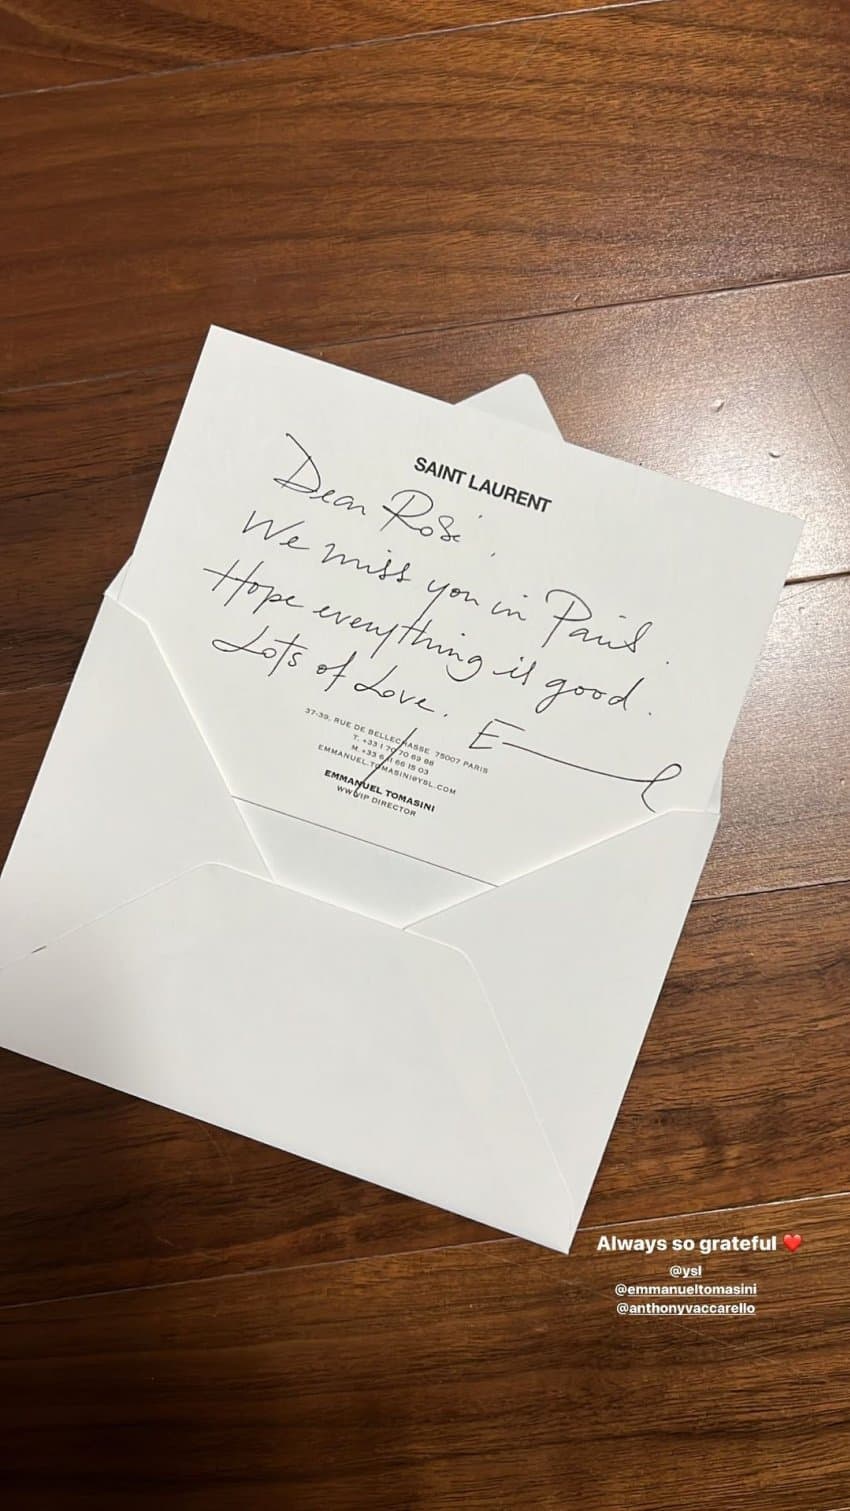 SAINT LAURENT
Dear Rosé.
We miss you in Paris.
Hope everything is good.
Lots of Love. E
37-39, RUE DE BELLECHASSE 75007 PARIS
T. +33 1 70 70 69 88
M. +33 6 11 66 15 03
EMMANUEL.TOMASINI@YSL.COM
EMMANUEL TOMASINI
WW VIP DIRECTOR
Always so grateful ❤️
@ysl
@emmanueltomasini
@anthonyvaccarello